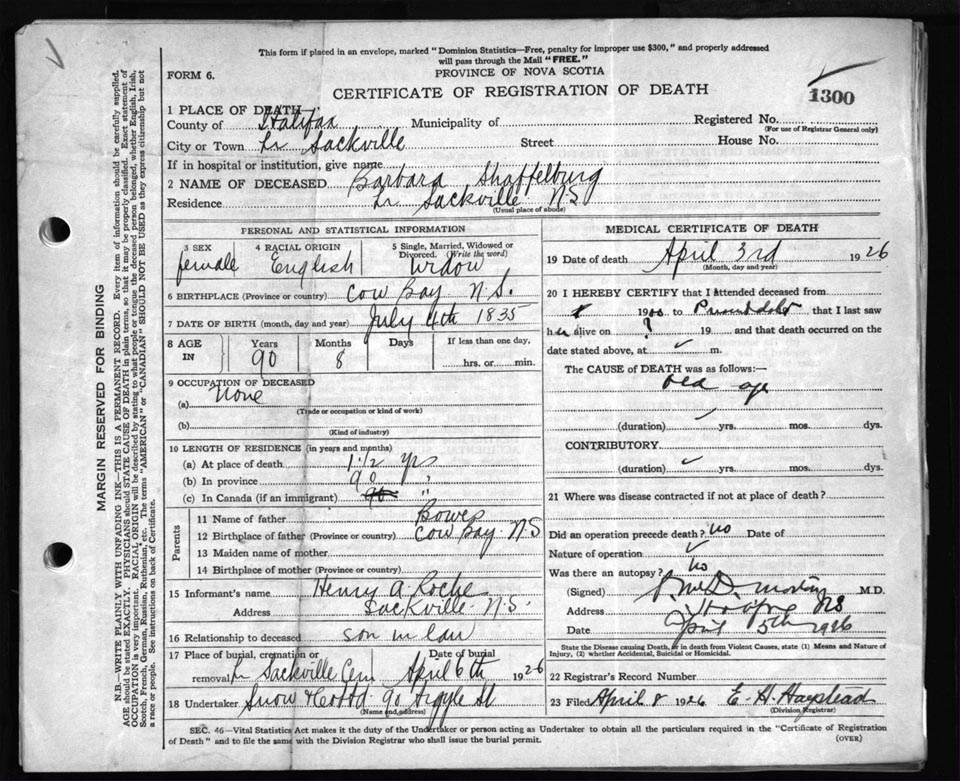 This form if placed in an envelope, marked "Dominion Statistics—Free, penalty for improper use $300," and properly addressed
will pass through the Mail "FREE."
FORM 6.
PROVINCE OF NOVA SCOTIA
CERTIFICATE OF REGISTRATION OF DEATH
1300
1 PLACE OF DEATH—
County of Halifax Municipality of
Registered No.
(For use of Registrar General only)
City or Town Lr Sackville Street House No.
If in hospital or institution, give name
2 NAME OF DECEASED Barbara Shaffelburg
Residence Lr Sackville NS
(Usual place of abode)
PERSONAL AND STATISTICAL INFORMATION
3 SEX female
4 RACIAL ORIGIN English
5 Single, Married, Widowed or
Divorced. (Write the word)
Widow
6 BIRTHPLACE (Province or country) Cow Bay N.S.
7 DATE OF BIRTH (month, day and year) July 4th 1835
8 AGE IN
Years Months Days If less than one day,
90 8 hrs. or min.
9 OCCUPATION OF DECEASED
(a) None
(Trade or occupation or kind of work)
(b)
(Kind of industry)
10 LENGTH OF RESIDENCE (in years and months)
(a) At place of death 1 1/2 yrs
(b) In province 90 "
(c) In Canada (if an immigrant) 90 "
Parents
11 Name of father Bowes
12 Birthplace of father (Province or country) Cow Bay N S
13 Maiden name of mother
14 Birthplace of mother (Province or country)
15 Informant's name Henry A. Roche
Address Sackville N.S.
16 Relationship to deceased son in law
17 Place of burial, cremation or Date of burial
removal Lr Sackville Cem April 6th 1926
18 Undertaker Snow & Co Ltd 90 Argyle St
(Name and address)
MEDICAL CERTIFICATE OF DEATH
19 Date of death April 3rd 1926
(Month, day and year)
20 I HEREBY CERTIFY that I attended deceased from
19 to that I last saw
her alive on ? 19 and that death occurred on the
date stated above, at m.
The CAUSE of DEATH was as follows:—
Old age
(duration) yrs. mos. dys.
CONTRIBUTORY
(duration) yrs. mos. dys.
21 Where was disease contracted if not at place of death?
Did an operation precede death? No Date of
Nature of operation
Was there an autopsy? No
(Signed) M.D.
Address NS
Date April 5th 1926
State the Disease causing Death, or in death from Violent Causes, state (1) Means and Nature of
Injury, (2) whether Accidental, Suicidal or Homicidal.
22 Registrar's Record Number
23 Filed April 8 1926 E. H. Haystead
(Division Registrar)
SEC. 46—Vital Statistics Act makes it the duty of the Undertaker or person acting as Undertaker to obtain all the particulars required in the "Certificate of Registration
of Death" and to file the same with the Division Registrar who shall issue the burial permit. (OVER)
MARGIN RESERVED FOR BINDING
N.B.—WRITE PLAINLY WITH UNFADING INK—THIS IS A PERMANENT RECORD. Every item of information should be carefully supplied.
AGE should be stated EXACTLY. PHYSICIANS should STATE CAUSE OF DEATH in plain terms, so that it may be properly classified. Exact statement of
OCCUPATION is very important. RACIAL ORIGIN will be described by stating to what people or tongue the deceased person belonged, whether English, Irish,
Scotch, French, German, Russian, Ruthenian, etc. The terms "AMERICAN" or "CANADIAN" SHOULD NOT BE USED as they express citizenship but not
a race or people. See instructions on back of Certificate.